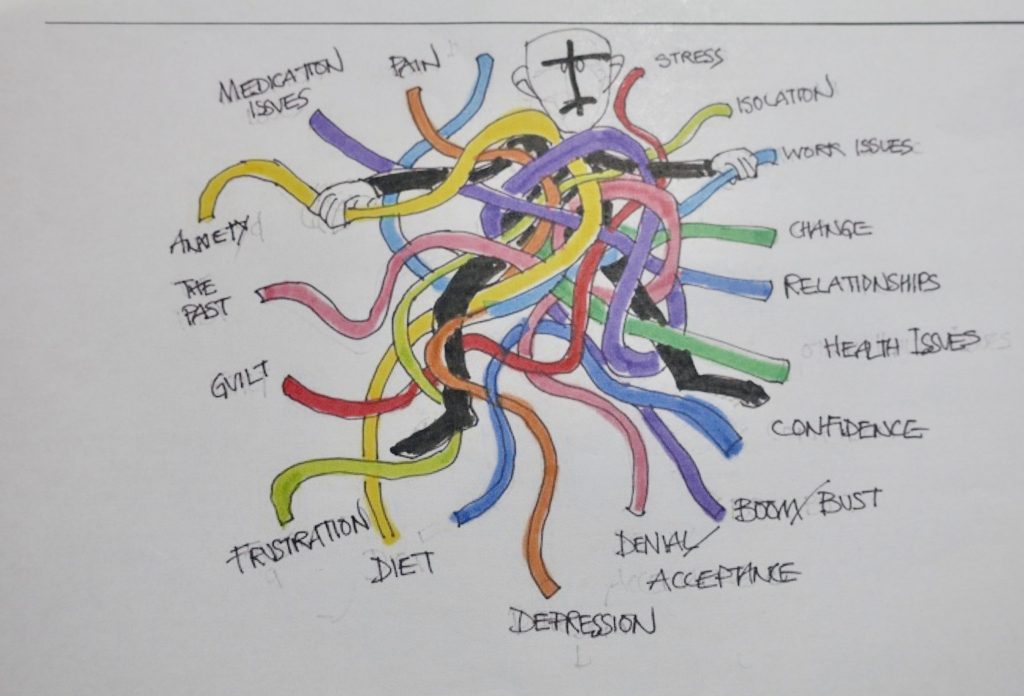 STRESS
PAIN
MEDICATION
ISSUES
ISOLATION
WORK ISSUES
ANXIETY
CHANGE
THE
PAST
RELATIONSHIPS
HEALTH ISSUES
GUILT
CONFIDENCE
BOOM/BUST
FRUSTRATION
DIET
DENIAL/
ACCEPTANCE
DEPRESSION